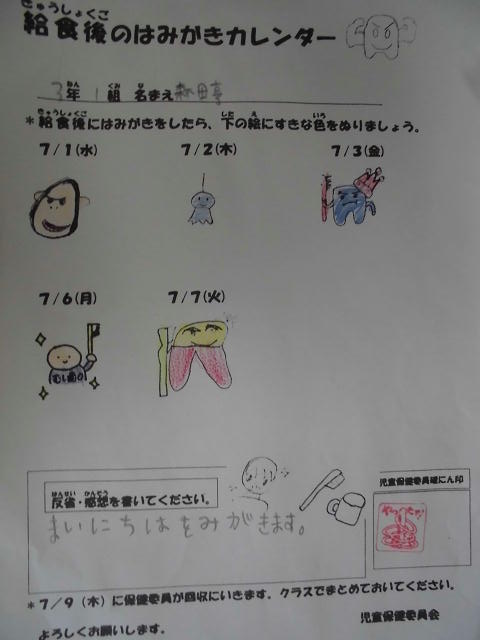 きゅうしょくご
給食後のはみがきカレンダー
3年 1組 名まえ
*給食後にはみがきをしたら、下の絵にすきな色をぬりましょう。
7/1(水) 7/2(木) 7/3(金)
7/6(月) 7/7(火)
反省・感想を書いてください。
まいにちはをみがきます。
児童保健委員確にん印
*7/9(木)に保健委員が回収にいきます。クラスでまとめておいてください。
よろしくお願いします。
児童保健委員会